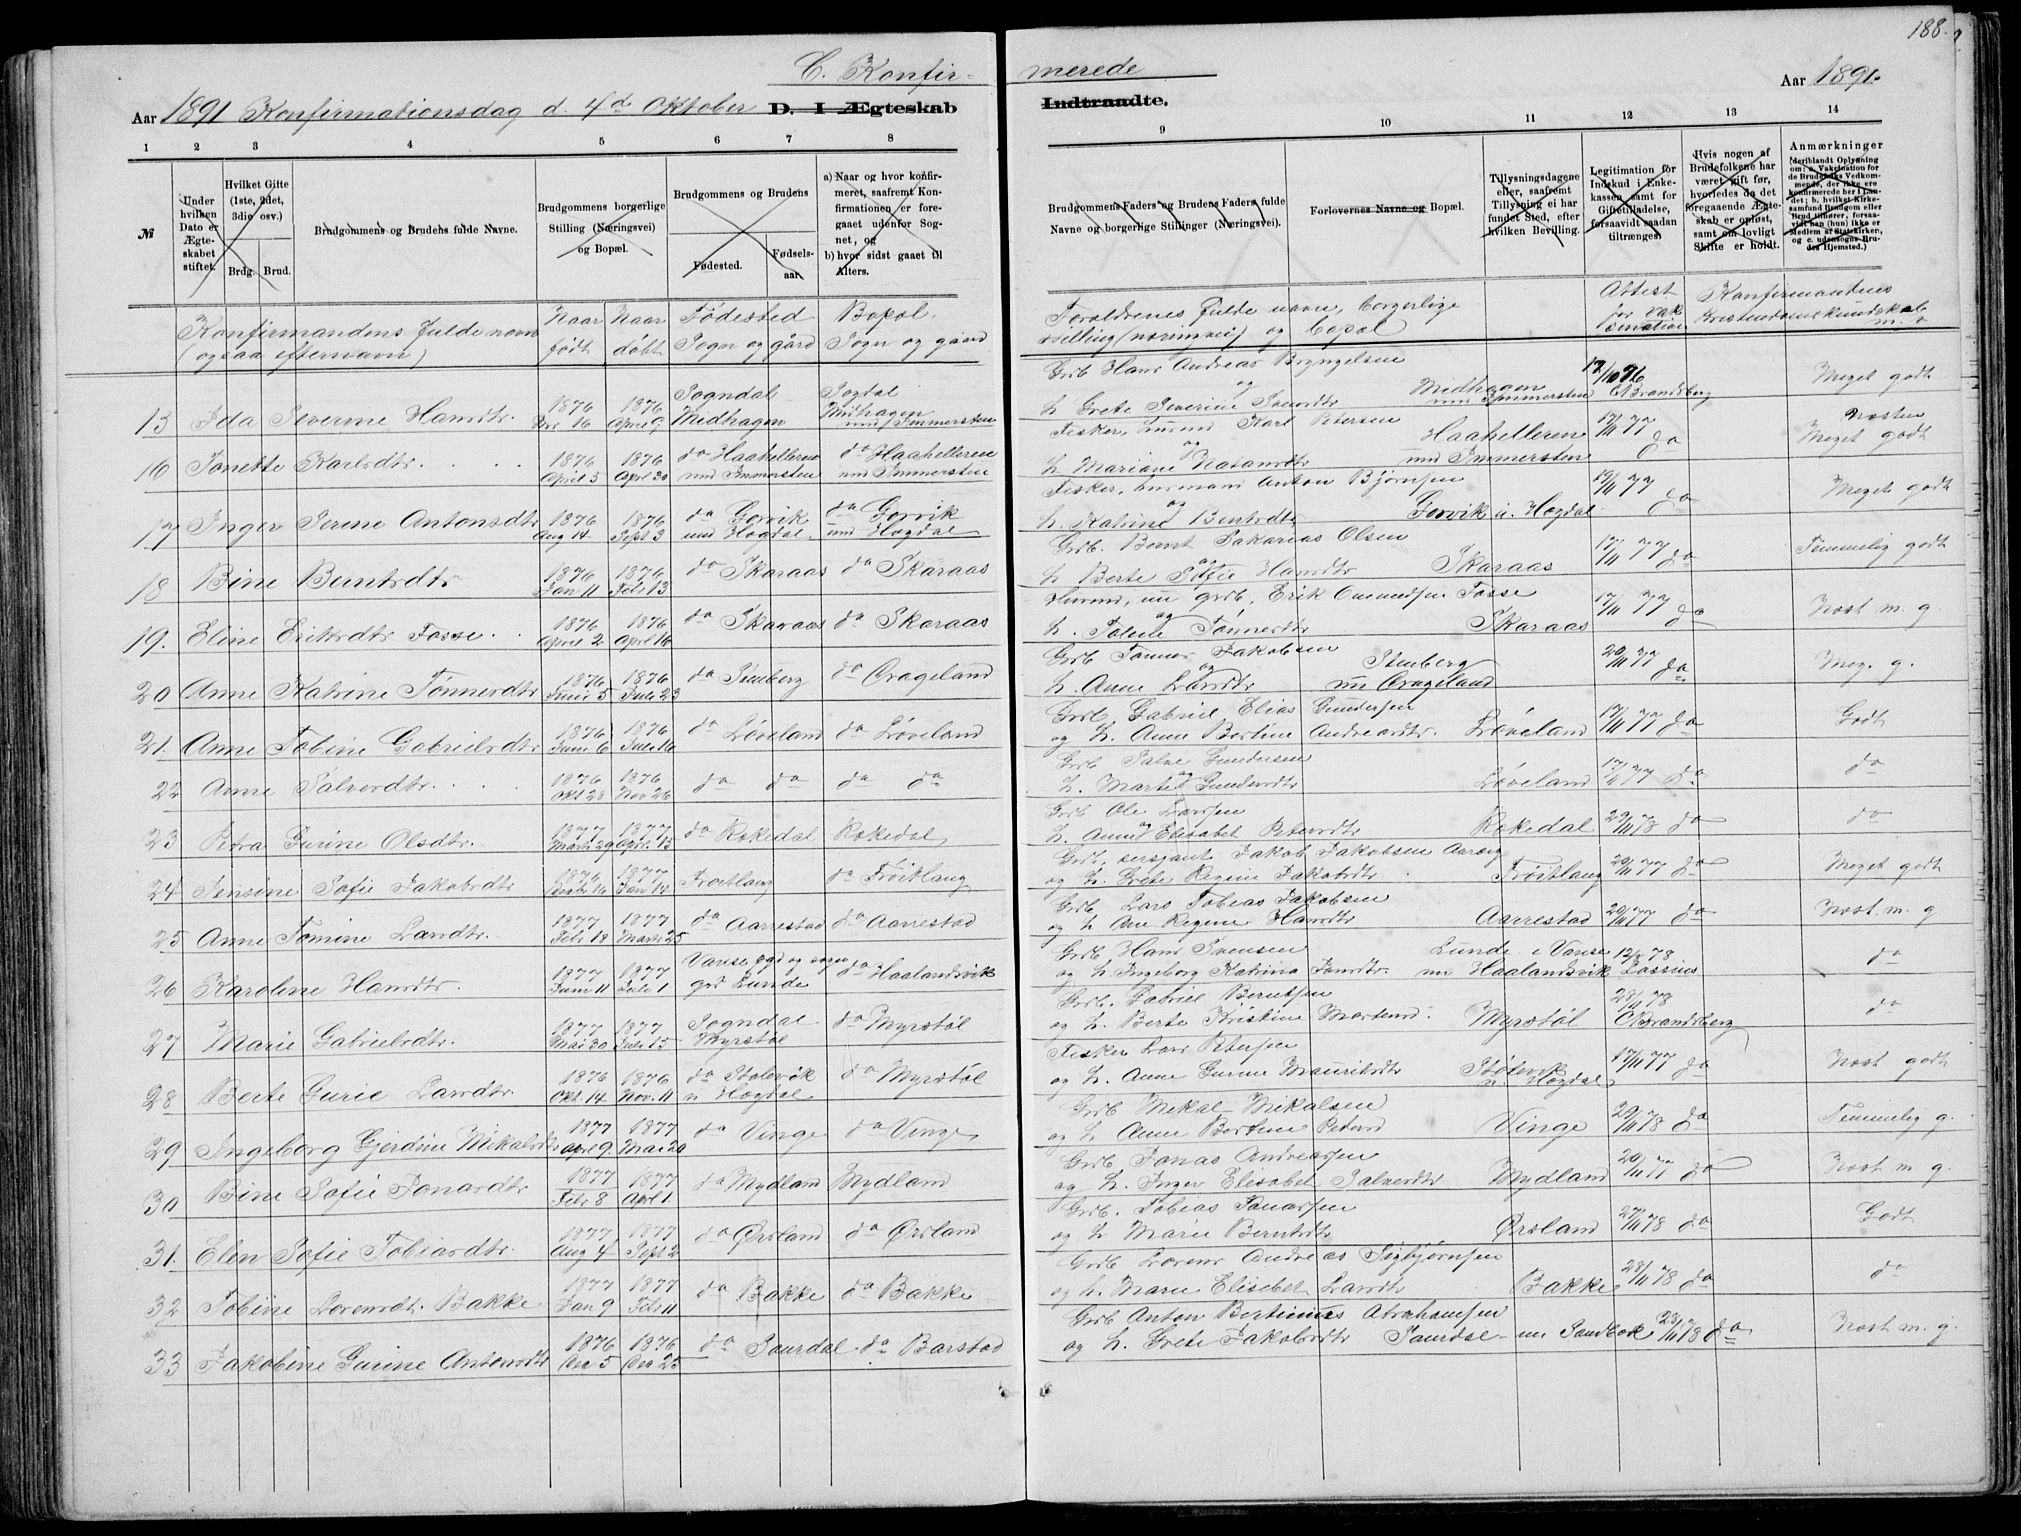 188.
C. Konfirmerede
Aar 1891 Konfirmationsdag d. 4de Oktober D. I Ægteskab Indtraadte. Aar 1891.
1 2 3 4 5 6 7 8 9 10 11 12 13 14
№
Under hvilken Dato er Ægteskabet stiftet.
Hvilket Gifte (1ste, 2det, 3die osv.)
Brdg. Brud.
Brudgommens og Brudens fulde Navne.
Brudgommens borgerlige Stilling (Næringsvei) og Bopæl.
Brudgommens og Brudens
Fødested. Fødselsaar.
a) Naar og hvor konfirmeret, saafremt Konfirmationen er foregaaet udenfor Sognet, og
b) hvor sidst gaaet til Alters.
Brudgommens Faders og Brudens Faders fulde Navne og borgerlige Stillinger (Næringsvei).
Forlovernes Navne og Bopæl.
Tillysningsdagene eller, saafremt Tillysning ei har fundet Sted, efter hvilken Bevilling.
Legitimation for Indskud i Enkekassen samt for Giftetilladelse, forsaavidt saadan tiltrænges.
Hvis nogen af Brudefolkene har været gift før, hvorledes da det foregaaende Ægteskab er opløst, samt om lovligt Skifte er holdt.
Anmærkninger
Konfirmandens fulde navn (ogsaa efternavn)
Naar født
Naar døbt
Fødested Sogn og gård
Bopæl. Sogn og gaard
Forældrenes fulde navn, borgerlige stilling (næringsvei) og bopæl
Attest for vaksination
Konfirmandens kristendomskundskab m. v
13 Ida Severine Hansdtr. 1876 16 1876 April 9 Sogndal Midhagen Sogdal Midhagen und Immersten
Grb Hans Andreas Bryngelsen og H. Grete Severine Svensdtr Midhagen und Immersten 17/10 76 C Brandsberg Meget godt
16 Jonette Karlsdtr. 1876 April 5 1876 April 30 do Haahelleren und Immersten do Haahelleren und Immersten
Fisker, husmd Karl Petersen og H. Mariane Natansdtr Haahelleren und Immersten 17/11 77 do Næsten Meget godt
17 Inger Serine Antonsdtr 1876 Aug 14 1876 Sept 3 do Gorvik und Hogdal. do Gorvik und Hogdal
Fisker, husmand Anton Bjørnsen og H. Katrine Berntsdtr Gorvik u. Hogdal 17/11 77 do Meget godt
18 Bine Berntsdtr 1876 Jan 11 1876 Febr 13 do Skaraas do Skaraas
Grb. Bernt Sakarias Olsen og H Berte Sofie Hansdtr Skaraas 17/11 77 do Temmelig godt
19. Eline Eriksdtr Fosse. 1876 April 2 1876 April 16 do Skaraas do Skaraas
Husmd, nu grb. Erik Fosse og H. Tønnesdtr Skaraas 17/11 77 do Næst m. g.
20 Anne Katrine Tønnesdtr 1876 Juni 5 1876 Juli 23 do Stenberg do Drageland
Grb Tønnes Jakobsen og H. Anne Larsdtr Stenberg nu Drageland 20/11 77 do Meg. g.
21. Anne Tobine Gabrielsdtr 1876 Juni 6 1876 Juli 16 do Løveland do Løveland
Grb. Gabriel Elias Gundersen og H. Anne Bertine Andreasdtr. Løveland 17/11 77 do Godt
22 Anne Salvesdtr. 1876 Okt 28 1876 Nov 26 do do do do
Grb Salve Gundersen og H. Marte Gundersdtr Løveland 17/11 77 do do
23 Petra Gurine Olsdtr. 1877 Marts 29 1877 April 15 do Rokedal Rokedal
Grb Ole Larssen og H. Anne Elisabet Petersdtr Rokedal 29/11 78 do do
24 Jensine Sofie Jakobsdtr 1876 Decbr 16 1877 Jan 14 Frøitlang do Frøitlang
Grb, sersjant Jakob Jakobsen Aarrej og H. Grete Regine Jakobsdtr Frøitlang 20/11 77 do Meget godt
25 Anne Tomine Larsdtr. 1877 Febr 18 1877 Marts 25 do Aarrestad do Aarrestad
Grb Lars Tobias Jakobsen og H Ane Regine Hansdtr Aarrestad 20/11 77 do Næst m. g
26 Karoline Hansdtr. 1877 Juni 11 1877 Juli 1 Vanse pgd og sogn grd Lunde do Haalandsvik
Grb Hans Svensen og H. Ingeborg Katrina Jansdtr. Lunde i Vanse nu Haalandsvik 12/8 78 Lassius do
27 Marie Gabrielsdtr. 1877 Mai 30 1877 Juli 15 Sogndal Myrstøl do Myrstøl
Grb. Gabriel Berntsen og H. Berte Kristine Mortensd. Myrstøl 28/11 78 C Brandsberg do
28 Berte Gurie Larsdtr. 1876 Okt. 14 1876 Nov. 11 do Stølsvik u Hogdal do Myrstøl
Fisker Lars Petersen og H. Anne Gurine Mauritsdtr Stølsvik u. Hogdal 17/11 77 do Næst godt
29 Ingeborg Gjerdine Mikalsdtr 1877 April 9. 1877 Mai 20 do Vinge do Vinge
Grb Mekal Mikalsen og H Anne Bertine Petersd Vinge 29/11 78 do Temmelig g.
30 Bine Sofie Jonasdtr 1877 Febr 8 1877 April 1 do Mydland Mydland
Grb Jonas Andreassen og H. Inger Elisabet Salvesdtr Mydland 20/11 77 do Næst m g.
31. Elen Sofie Tobiasdtr. 1877 Aug 4 1877 Sept 2 do Ørsland do Ørsland
Grb. Tobias Jonassen og H Marie Berntsdtr Ørsland 27/11 78 do Godt
32 Tobine Lorensdtr. Bakke 1877 Jan 9 1877 Febr 11 do Bakke do Bakke
Grb Lorens Andreas Sigbjørnsen og H. Marie Elisebet Larsdtr Bakke 28/11 78 do do
33 Jakobine Gurine Antonsdtr 1876 Dec 5 1876 Dec 25 do Saurdal do Barstad
Grb Anton Bertinius Abrahamsen og H. Grete Jakobsdtr nu Sandbek 28/11 78 do Næst m. g.